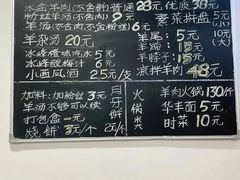 水盆羊肉(不含饼)普通28元 优质38元
粉丝羊汤(不含肉)9元
羊汤(不含肉) 元
素菜拼盘 5元
羊杂 20元
羊尾: 5元
羊蹄: 15元
羊脖子: 15元
冰峰橙味汽水5元
冰峰酸梅汤 6元
凉拌羊肉 48元
小西凤酒 25元/支
加料: 加粉丝3元
羊汤不够可以续
打包盒一元
烧饼3元/个
白吉饼 2元/个
火锅类
羊肉火锅130/斤
华丰面 5元
时菜 10元